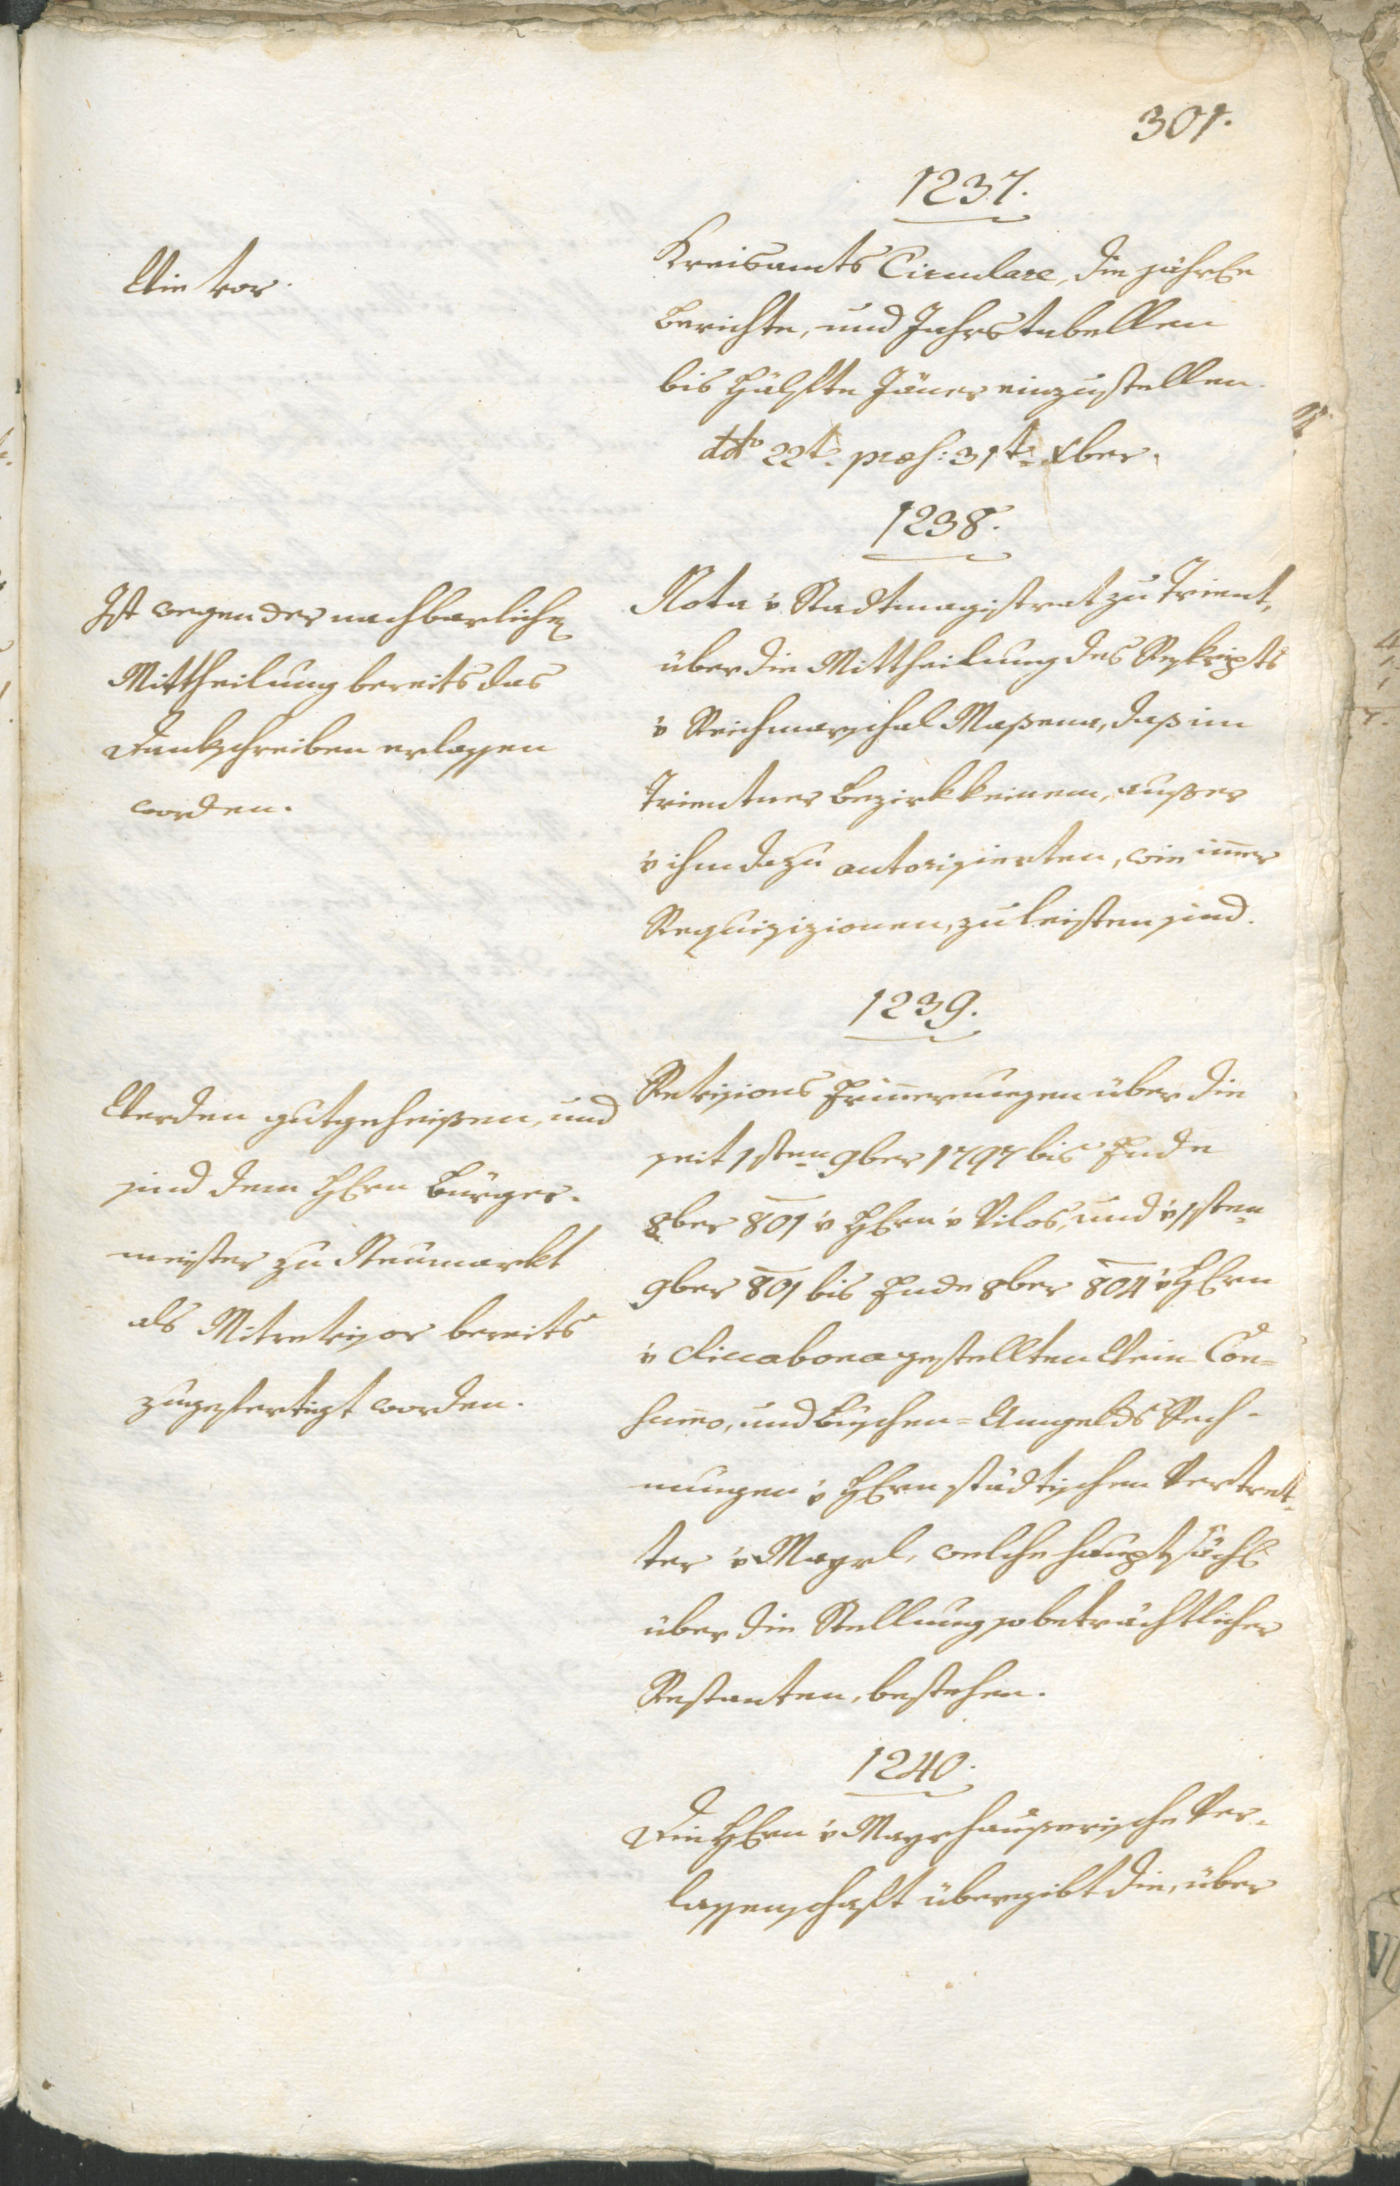 301.
1237.
Kreisamts Circulare, die jährln
Berichte, und Jahrstabellen
bis Hälfte Jäner einzustellen.
ddto 22t. præs: 31t. Xber.
Wie vor.
1238.
Nota v Stadtmagistrat zu Trient,
über die Mittheilung des Reskripts
v Reichmarschal Massena, daß im
Trientner Bezirk keinem, ausser
v ihm dazu autorisierten, wie imer
Requisizionen, zu leisten sind.
Ist wegen der nachbarlichen
Mittheilung bereits das
Dankschreiben erlassen
worden.
1239.
Revisions Erinnerungen über die
seit 1sten 9ber 1797 bis Ende
8ber 801 v HErn v Vilos, und v 1sten
9ber 801 bis Ende 8ber 804 v HErn
v Ciccabona gestellten Wein-Con=
sumo, und Buschen=Umgelds Rech-
nungen v HErn städtischen Vertret-
ter v Mayrl, welche hauptsächl
über die Stellung so beträchtlicher
Restanten, bestehen.
Werden gutgeheissen, und
sind dem HErn Bürger-
meister zu Neumarkt
als Mitrevisor bereits
zugefertigt worden.
1240.
Die HErn v Mayrhauserische Ver-
lassenschaft übergibt die, über